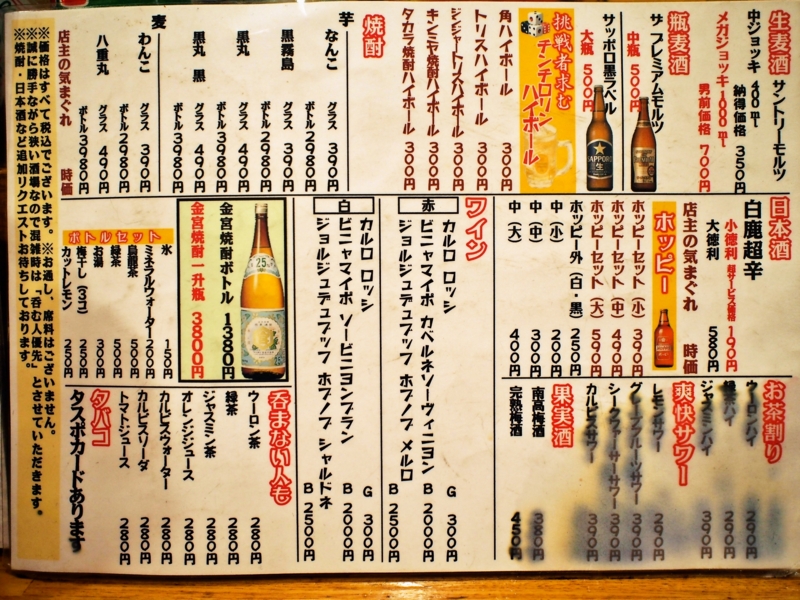 生麦酒 サントリーモルツ
中ジョッキ 400ml
納得価格 350円
メガジョッキ 1000ml
男前価格 700円
瓶麦酒
ザ プレミアムモルツ
中瓶 500円
サッポロ黒ラベル
大瓶 500円
挑戦者求む
チンチロリン
ハイボール
角ハイボール 300円
トリスハイボール 300円
ジンジャートリスハイボール 300円
キンミヤ焼酎ハイボール 300円
タカラ焼酎ハイボール 300円
焼酎
芋
なんこ グラス 390円
ボトル 2980円
黒霧島 グラス 390円
ボトル 2980円
黒丸 グラス 490円
ボトル 3980円
黒丸 黒 グラス 490円
ボトル 3980円
麦
わんこ グラス 390円
ボトル 2980円
八重丸 グラス 490円
ボトル 3980円
店主の気まぐれ 時価
日本酒
白鹿超辛
小徳利 超サービス価格 190円
大徳利 580円
店主の気まぐれ 時価
ホッピー
ホッピーセット(小) 390円
ホッピーセット(中) 490円
ホッピーセット(大) 590円
ホッピー外(白・黒) 250円
中(小) 200円
中(中) 300円
中(大) 400円
ワイン
赤
カルロ ロッシ G 300円
ビニャマイポ カベルネソーヴィニヨン B 2000円
ジョルジュデュブッフ ホブノブ メルロ B 2500円
白
カルロ ロッシ G 300円
ビニャマイポ ソービニヨンブラン B 2000円
ジョルジュデュブッフ ホブノブ シャルドネ B 2500円
金宮焼酎ボトル 1380円
金宮焼酎一升瓶 3800円
ボトルセット
氷 150円
ミネラルウォーター 200円
烏龍茶 500円
緑茶 500円
お湯 300円
梅干し(3コ) 250円
カットレモン 250円
お茶割り
ウーロンハイ 290円
緑茶ハイ 290円
ジャスミンハイ 390円
爽快サワー
レモンサワー 290円
グレープフルーツサワー 390円
シークァーサーサワー 390円
カルピスサワー 390円
果実酒
南高梅酒 380円
完熟梅酒 450円
呑まない人も
ウーロン茶 280円
緑茶 280円
ジャスミン茶 280円
オレンジジュース 280円
カルピスウォーター 280円
カルピスソーダ 280円
トマトジュース 280円
タバコ
タスポカードあります
※価格はすべて税込でございます。 ※お通し、席料はございません。
※誠に勝手ながら狭い酒場なので混雑時は「呑む人優先」とさせていただきます。
※焼酎・日本酒など追加リクエストお待ちしております。